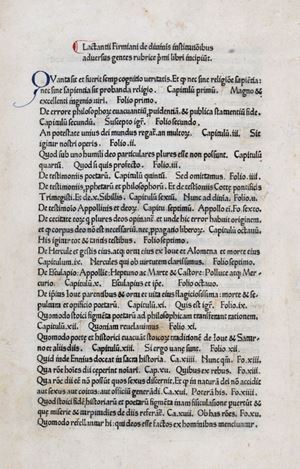 Lactantii Firmiani de diuinis institutiõibus
aduersus gentes rubrice p̃mi libri incipiũt.
Quanta sit et fuerit semp cognitio ueritatis. Et q nec sine religiõe sapiẽtia:
nec sine sapientia sit probanda religio. Capitulũ primum. Magno &
excellenti ingenio uiri. Folio primo.
De errore philosophoꝝ euacuantiũ, puidentiã, & publica stamentiũ fide.
Capitulũ secundũ. Suscepto igit̃. Folio secundo.
An potestate unius dei mundus regat̃ an multoꝝ. Capitulũ.iii. Sit
iginar nostri operis. Folio.ii.
Quod sub uno humili deo particulares plures esse non possunt. Capitulũ
quartũ. Quod si quis profecto. Folio.iii.
De testimoniis poetarũ. Capitulũ quintũ. Sed omittamus. Folio.iiii.
De testimoniis, ppħetarũ et philosophorũ. Et de testimoniis Cotte pontificis
Trimegisti. Et de.x. Sibillis. Capitulũ sextũ. Nunc ad diuina. Folio.v.
De testimõio Appollinis et deoꝝ. Capitũ septimũ. Appollo.ei. Fo.sexto.
De cecitate eoꝝ. q plures deos opinant̃ et unde hic error habuit originem.
et q corpus deo nõ est necessariũ, nec, ppagatio liberoꝝ. Capitulũ octauũ.
His iginar tot & tantis testibus. Folio septimo.
De Hercule et gestis eius, ac q ortũ eius ex Ioue et Alcmena et morte eius
Capitulum.ix. Hercules qui ob uirtutem clarissimus. Folio septimo.
De Esculapio: Appolliẽ: Hepruno ac Marte & Castore: Polluce atq Mer-
curio. Capitulũ.x. Esculapius et ipẽ. Folio octauo.
De ip̃ius Ioue parentibus & ortu et uita eius flagiciosissima: morte & se-
pultura et opificio poetarũ. Capitulũ.xi. Quis eſt igit̃. Folio.ix.
Quomodo stoici figmẽta poetarũ ad philosophiam transferant rationem.
Capitulũ.xii. Quoniam reuelauimus. Folio.xi.
Quomodo poete et historici euacuãt stoicoꝝ traditiõem q̃ntũ ad Ioue & Satur-
no et aliis diis. Capitulũ.xiii. Si ergo uane sunt. Folio.xii.
Quid inde Ennius doceat in sacra historia. Ca.xiiii. Nunc qm̃. Fo.xiii.
Qua rõe hoies dii ceperint nolari. Cap.xv. Quibus ex rebus. Fo.xiii.
Qua rõe dii eẽ nõ possũt quos sexus discernit. Et q in naturã dei nõ accidit
aut sexus aut coitus: aut officiũ generãdi. Ca.xvi. Poterã his. Fo.xiiii.
Quomodo stoici fidẽ historiarũ et poetarũ figmẽta uana fusculatione puertũt & q
que miserie & turpitudies de diis referãt. Ca.xvii. Ob has rões. Fo.xv.
Quomodo refellantur hi: qui deos esse factos ex hominibus meminerunt.